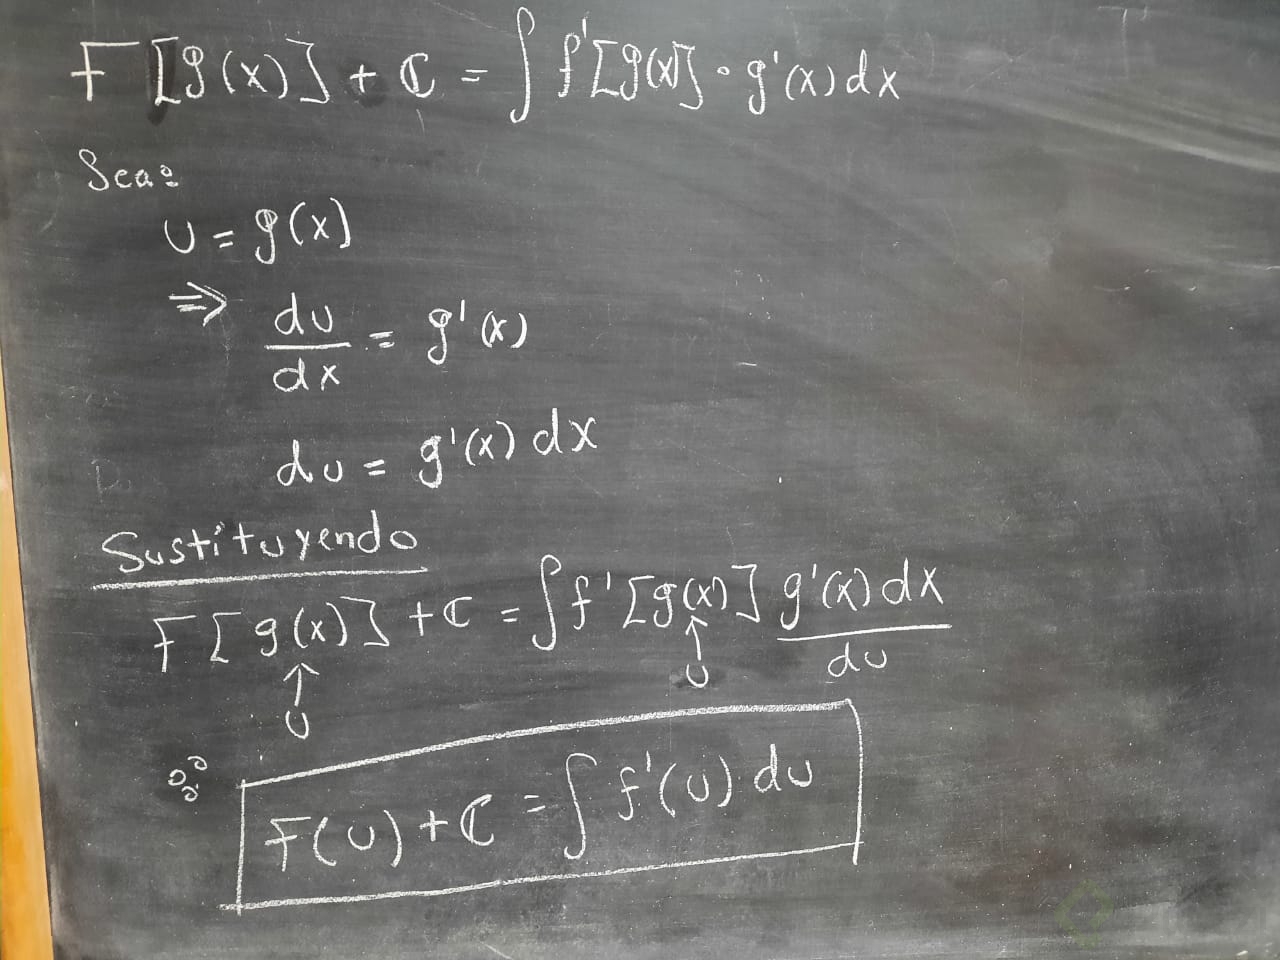 F[g(x)] + C = ∫ f'[g(x)] · g'(x) dx
Sea:
u = g(x)
⇒ du/dx = g'(x)
du = g'(x) dx
Sustituyendo
F[g(x)] + C = ∫ f'[g(x)] g'(x) dx
↑ ↑ du
u u
∴ F(u) + C = ∫ f'(u) du